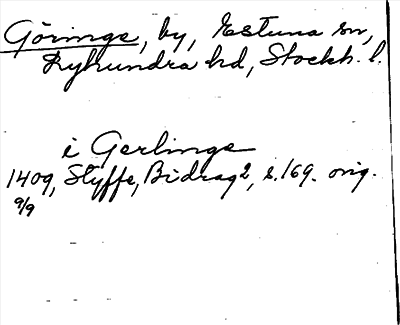 Görings, by, Estuna sn,
Lyhundra hd, Stockh. l.
i Gerlinge
1409, Styffe, Bidrag 2, s. 169. orig.
9/9